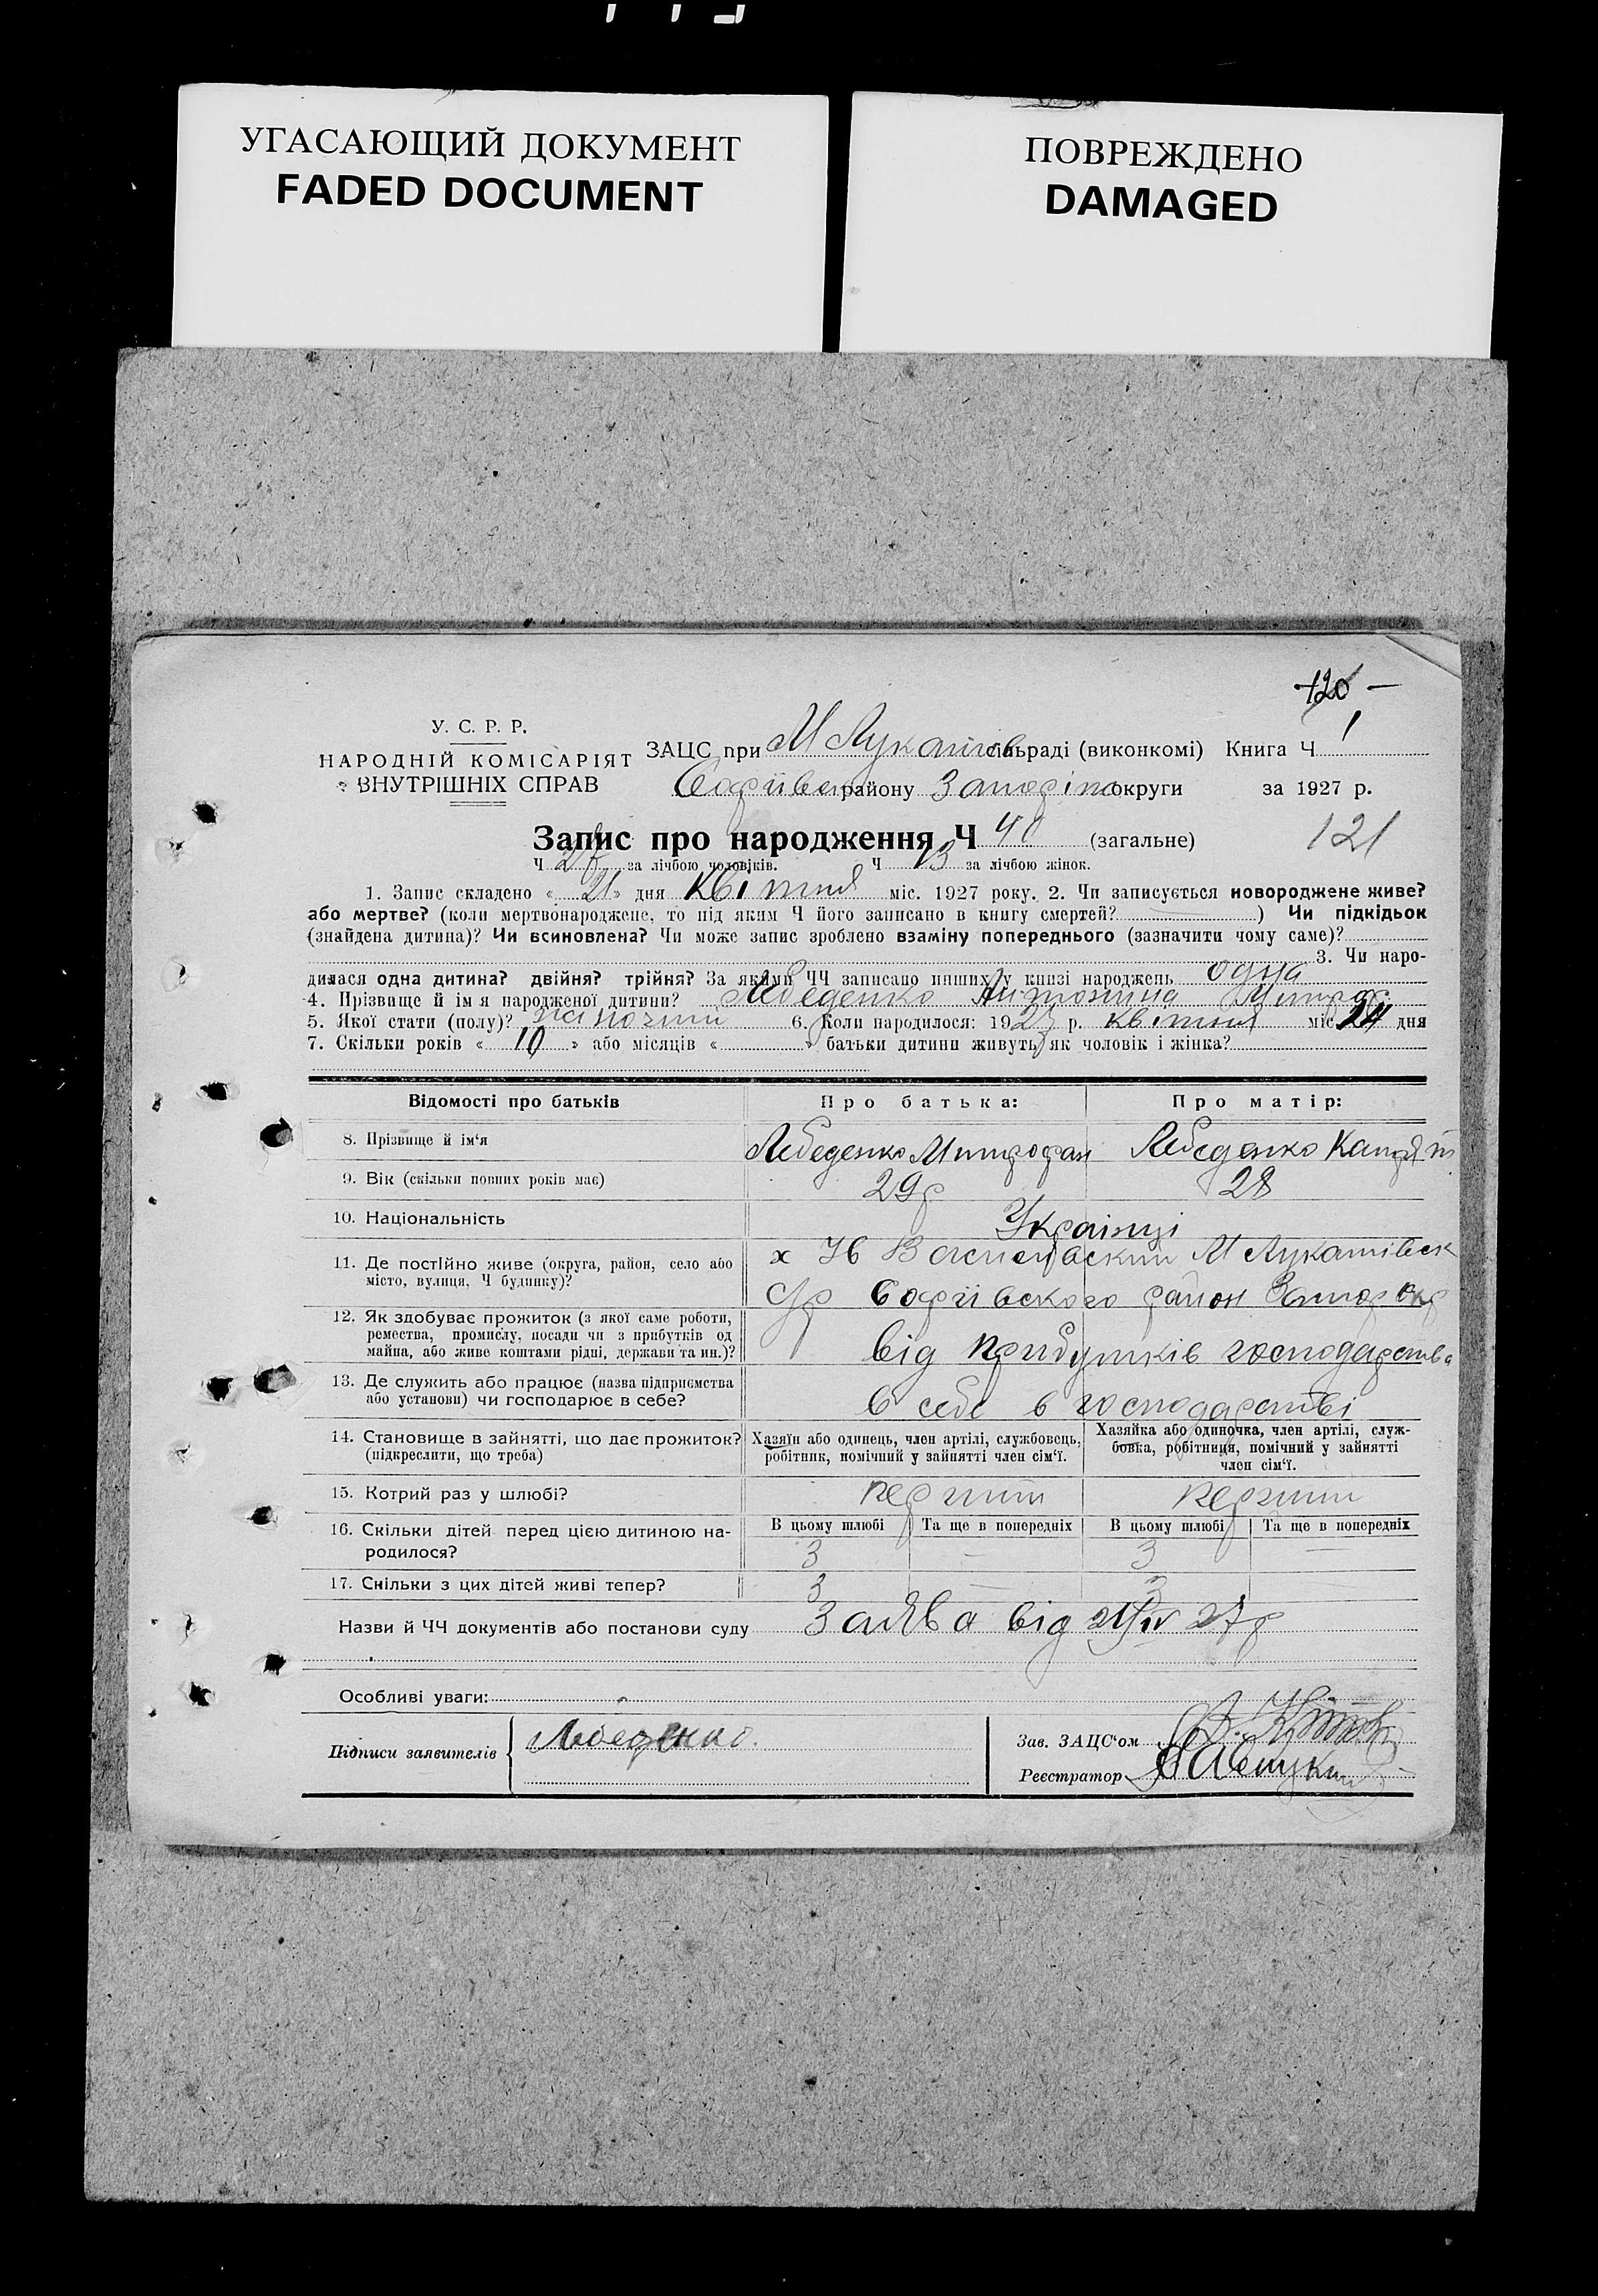 УГАСАЮЩИЙ ДОКУМЕНТ
FADED DOCUMENT
ПОВРЕЖДЕНО
DAMAGED
120 —
У. С. Р. Р.
НАРОДНІЙ КОМІСАРІЯТ
ВНУТРІШНІХ СПРАВ
ЗАЦС при М Лукашів сільраді (виконкомі) Книга Ч 1
Софіївськ району Запоріж округи за 1927 р.
121
Запис про народження Ч 40 (загальне)
Ч 27 за лічбою чоловіків. Ч 13 за лічбою жінок.
1. Запис складено « 21 » дня Квітня міс. 1927 року. 2. Чи записується новороджене живе?
або мертве? (коли мертвонароджене, то під яким Ч його записано в книгу смертей? — ) Чи підкідьок
(знайдена дитина)? Чи всиновлена? Чи може запис зроблено взаміну попереднього (зазначити чому саме)?
3. Чи наро-
дилася одна дитина? двійня? трійня? За якими ЧЧ записано инших у книзі народжень одна
4. Прізваще й ім я народженої дитини? Лебеденко Антонина Митроф
5. Якої стати (полу)? жіночий 6. Коли народилося: 1927 р. квітня міс 14 дня
7. Скільки років « 10 » або місяців « » батьки дитини живуть як чоловік і жінка?
Відомості про батьків Про батька: Про матір:
8. Прізвище й ім'я Лебеденко Митрофан Лебеденко Катря
9. Вік (скільки повних років має) 29р 28
10. Національність Українці
11. Де постійно живе (округа, район, село або
місто, вулиця, Ч будинку)?
х Ів Василівский М Лукашівск
с/р Софіївского район Запор окр
12. Як здобуває прожиток (з якої саме роботи,
ремества, промислу, посади чи з прибутків од
майна, або живе коштами рідні, держави та ин.)?
від прибутків господарства
13. Де служить або працює (назва підприємства
або установи) чи господарює в себе?
в себе в господарстві
14. Становище в зайнятті, що дає прожиток?
(підкреслити, що треба)
Хазяїн або одинець, член артілі, службовець,
робітник, помічний у зайнятті член сім'ї.
Хазяйка або одиночка, член артілі, служ-
бовка, робітниця, помічний у зайнятті
член сім'ї.
15. Котрий раз у шлюбі? перший перший
16. Скільки дітей перед цією дитиною на-
родилося?
В цьому шлюбі Та ще в попередніх В цьому шлюбі Та ще в попередніх
3 — 3 —
17. Скільки з цих дітей живі тепер? 3 — 3
Назви й ЧЧ документів або постанови суду Заява від 21/IV 27р
Особливі уваги:
Підписи заявителів Лебеденко.
Зав. ЗАЦС'ом
Реєстратор